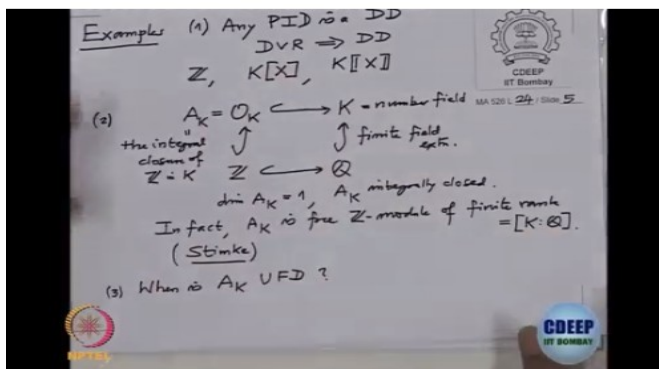 Examples (1) Any PID is a DD
DVR ⇒ DD
ℤ, K[X], K⟦X⟧
CDEEP
IIT Bombay
MA 526 L 24 / Slide 5
(2) A_K = O_K ↪ K = number field
the integral closure of ℤ in K
finite field extn.
ℤ ↪ ℚ
dim A_K = 1, A_K integrally closed.
In fact, A_K is free ℤ-module of finite rank
= [K:ℚ].
(Stimke)
(3) When is A_K UFD ?
NPTEL
CDEEP
IIT BOMBAY